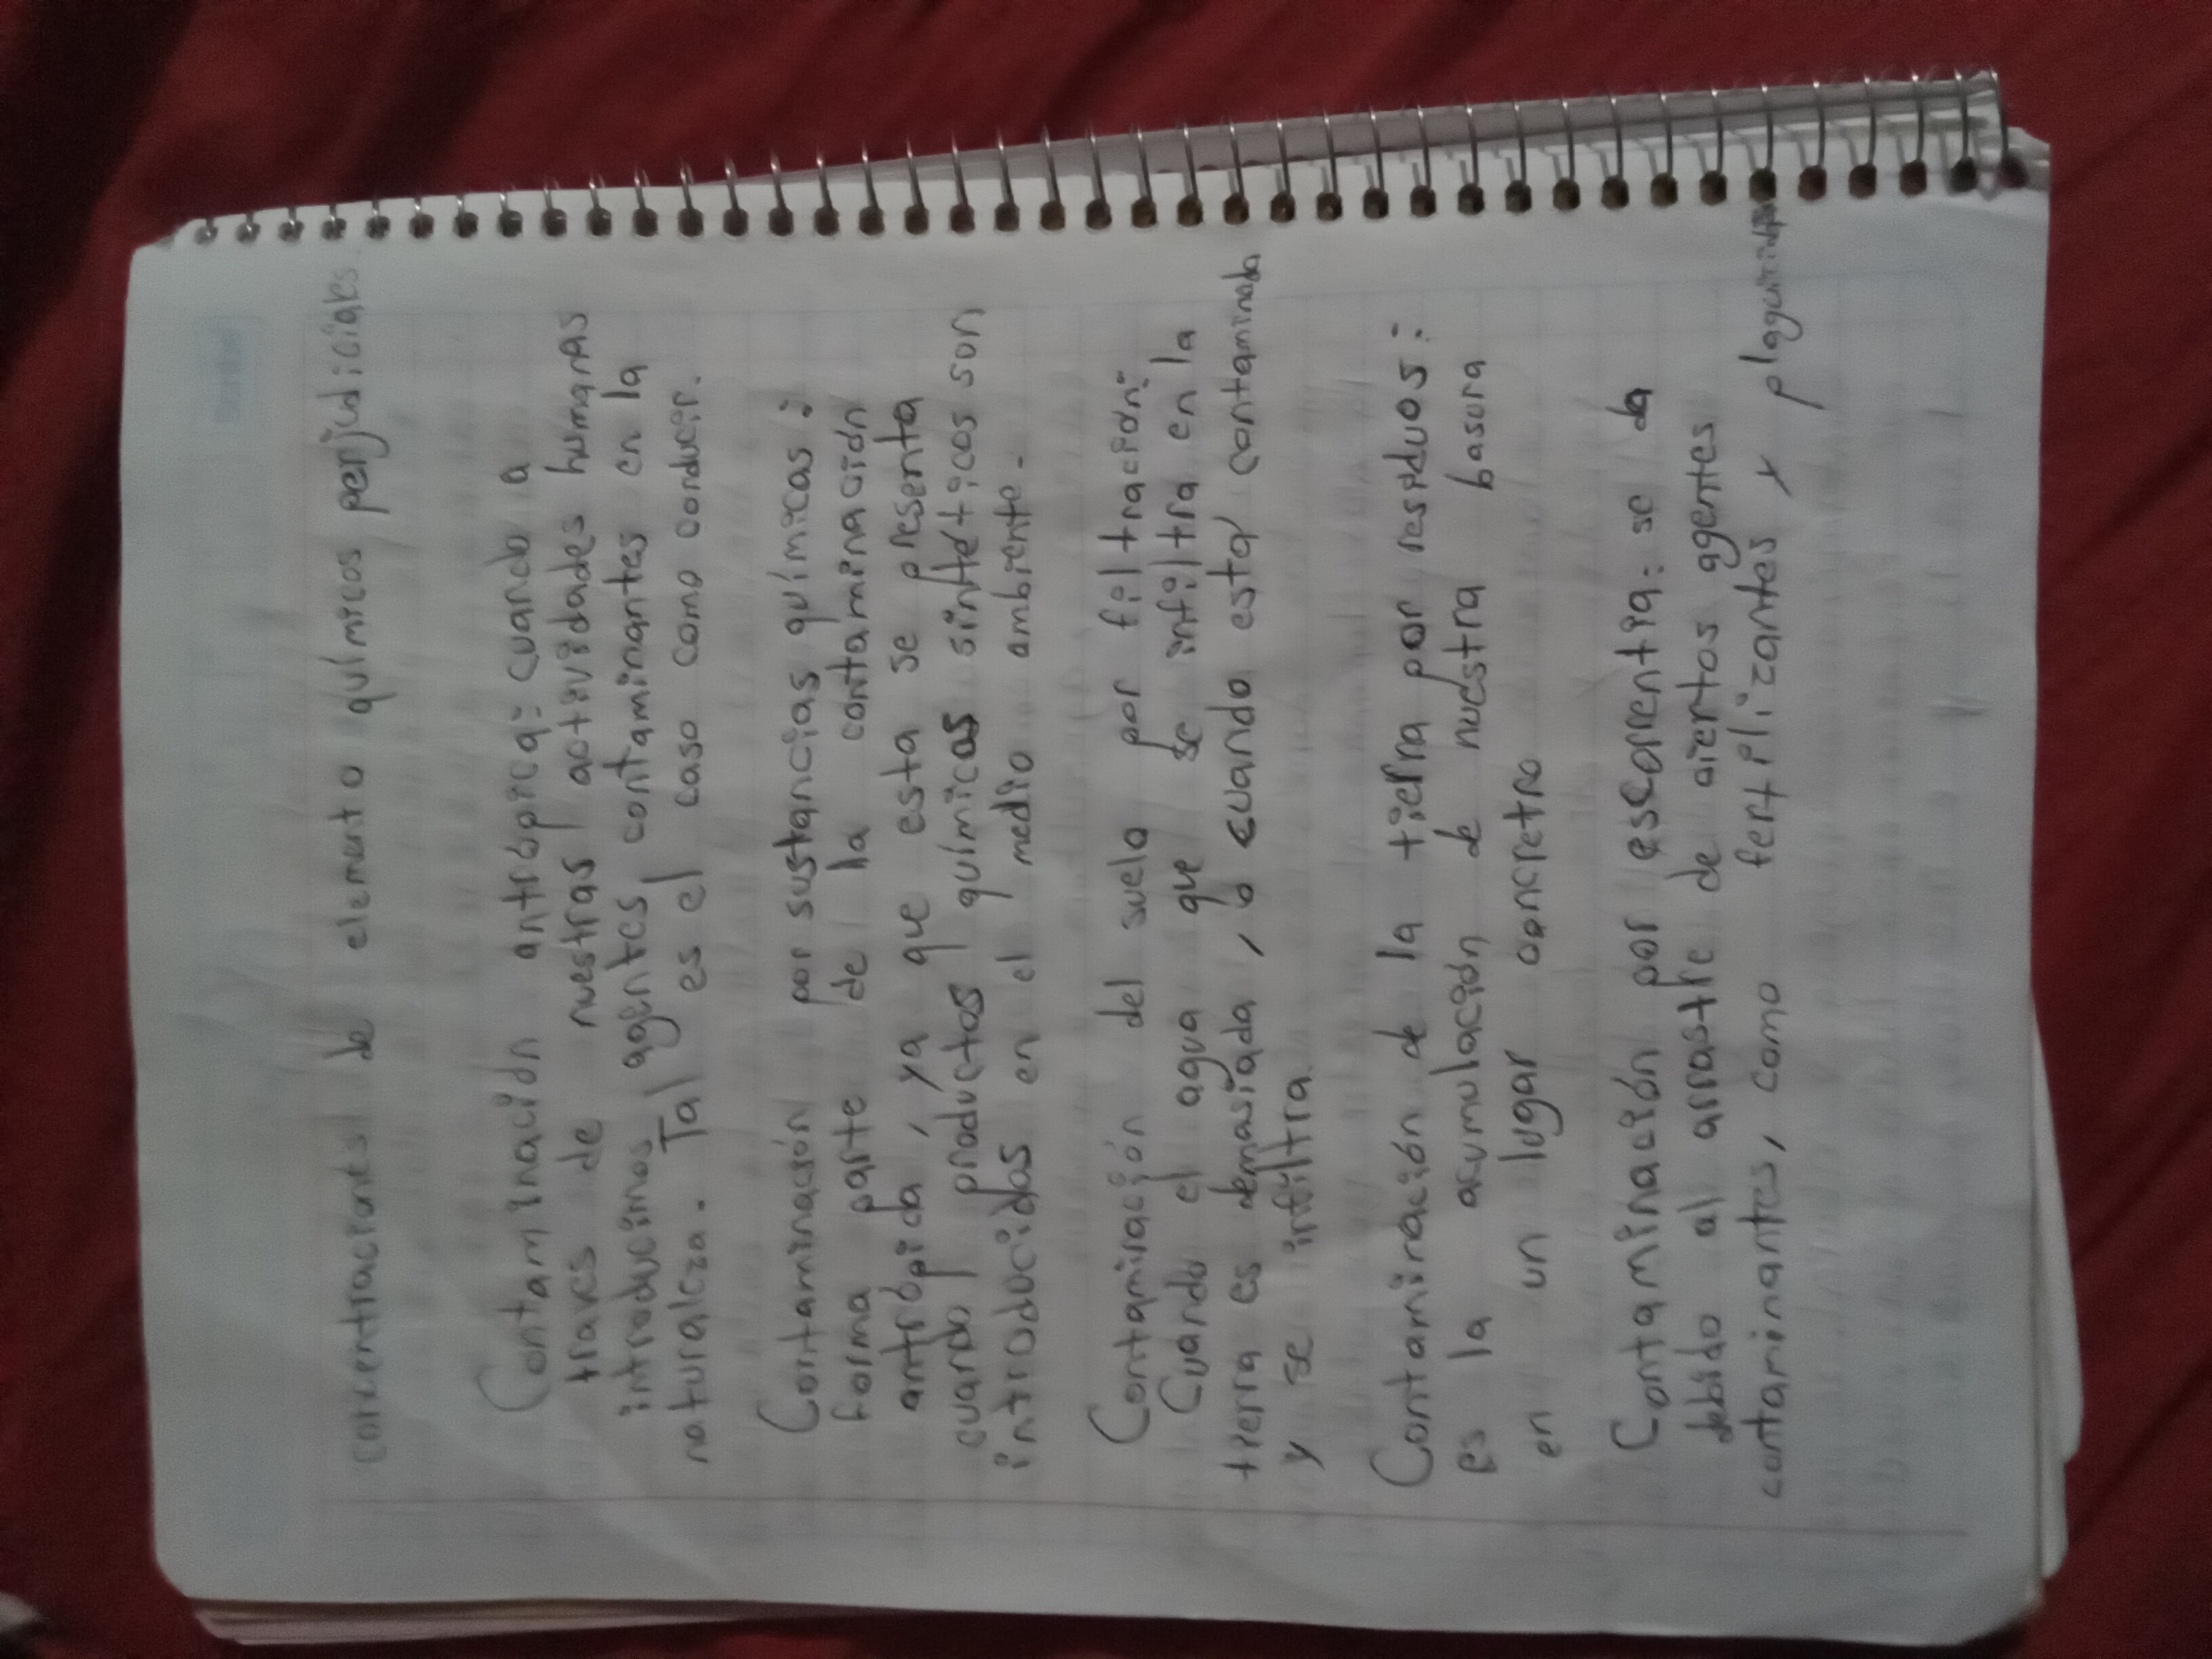 concentraciones de elemento químicos perjudiciales.
Contaminación antrópica: cuando a
traves de nuestras actividades humanas
introducimos agentes contaminantes en la
naturaleza. Tal es el caso como conducir.
Contaminación por sustancias químicas:
forma parte de la contaminación
antrópida, ya que esta se presenta
cuando productos químicos sintéticos son
introducidos en el medio ambiente.
Contaminación del suelo por filtración:
Cuando el agua que se infiltra en la
tierra es demasiada, o cuando está contaminada
y se infiltra.
Contaminación de la tierra por residuos:
es la acumulación de nuestra basura
en un lugar concretro
Contaminación por escorrentia: se da
debido al arrastre de ciertos agentes
contaminantes, como fertilizantes y